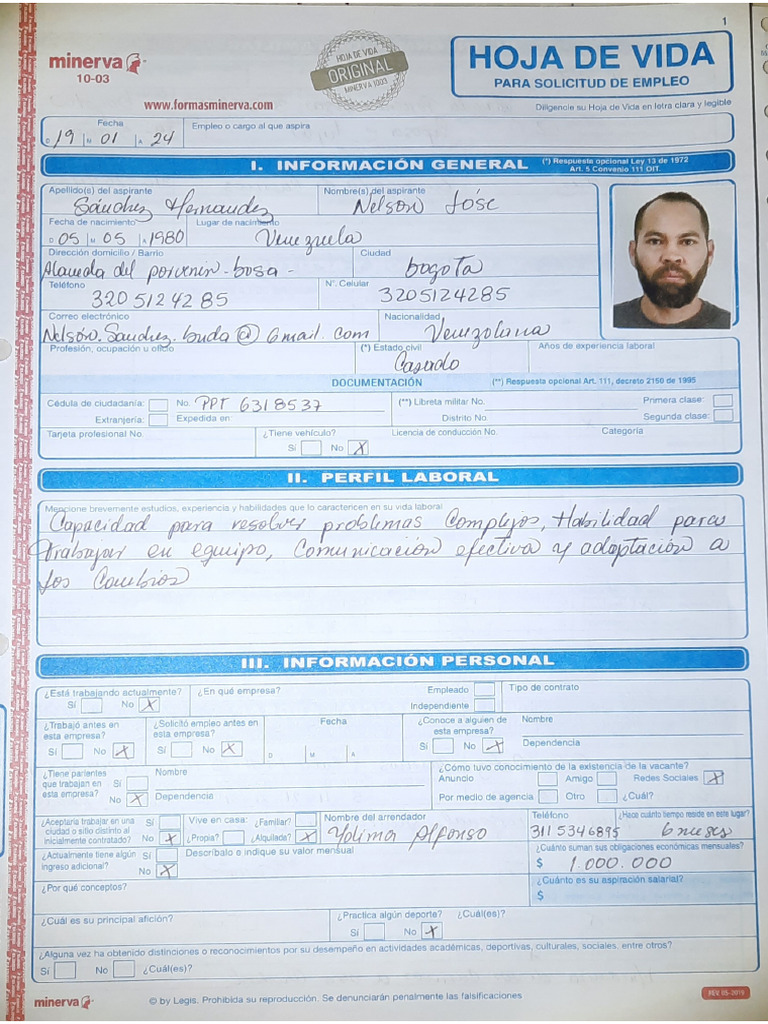 1
minerva
10-03
HOJA DE VIDA
ORIGINAL
MINERVA 1003
HOJA DE VIDA
PARA SOLICITUD DE EMPLEO
www.formasminerva.com
Diligencie su Hoja de Vida en letra clara y legible
Fecha Empleo o cargo al que aspira
D 19 M 01 A 24
I. INFORMACIÓN GENERAL (*) Respuesta opcional Ley 13 de 1972 Art. 5 Convenio 111 OIT.
Apellido(s) del aspirante Nombre(s) del aspirante
Sánchez Hernandez Nelson José
Fecha de nacimiento Lugar de nacimiento
D 05 M 05 A 1980 Venezuela
Dirección domicilio / Barrio Ciudad
Alameda del porvenir-bosa- bogota
Teléfono N°. Celular
320 5124285 3205124285
Correo electrónico Nacionalidad
Nelson.Sanchez.buda@Gmail.com Venezolana
Profesión, ocupación u oficio (*) Estado civil Años de experiencia laboral
Casado
DOCUMENTACIÓN (**) Respuesta opcional Art. 111, decreto 2150 de 1995
Cédula de ciudadanía: No. PPT 6318537 (**) Libreta militar No. Primera clase:
Extranjería: Expedida en: Distrito No. Segunda clase:
Tarjeta profesional No. ¿Tiene vehículo? Licencia de conducción No. Categoría
Sí No X
II. PERFIL LABORAL
Mencione brevemente estudios, experiencia y habilidades que lo caractericen en su vida laboral
Capacidad para resolver problemas Complejos, Habilidad para
trabajar en equipo, Comunicación efectiva y adaptación a
los Cambios
III. INFORMACIÓN PERSONAL
¿Está trabajando actualmente? ¿En qué empresa? Empleado Tipo de contrato
Sí No X Independiente
¿Trabajó antes en esta empresa? ¿Solicitó empleo antes en esta empresa? Fecha ¿Conoce a alguien de esta empresa? Nombre
Sí No X Sí No X D M A Sí No X Dependencia
¿Tiene parientes que trabajan en esta empresa? Sí Nombre ¿Cómo tuvo conocimiento de la existencia de la vacante?
Anuncio Amigo Redes Sociales X
No X Dependencia Por medio de agencia Otro ¿Cuál?
¿Aceptaría trabajar en una ciudad o sitio distinto al inicialmente contratado? Sí No X Vive en casa: ¿Familiar? ¿Propia? ¿Alquilada? X Nombre del arrendador Teléfono ¿Hace cuánto tiempo reside en este lugar?
Yolima Alfonso 311 5346895 6 meses
¿Actualmente tiene algún ingreso adicional? Sí No X Descríbalo e indique su valor mensual ¿Cuánto suman sus obligaciones económicas mensuales?
$ 1.000.000
¿Por qué conceptos? ¿Cuánto es su aspiración salarial?
$
¿Cuál es su principal afición? ¿Practica algún deporte? ¿Cuál(es)?
Sí No X
¿Alguna vez ha obtenido distinciones o reconocimientos por su desempeño en actividades académicas, deportivas, culturales, sociales, entre otros?
Sí No ¿Cuál(es)?
minerva © by Legis. Prohibida su reproducción. Se denunciarán penalmente las falsificaciones REV 05-2019